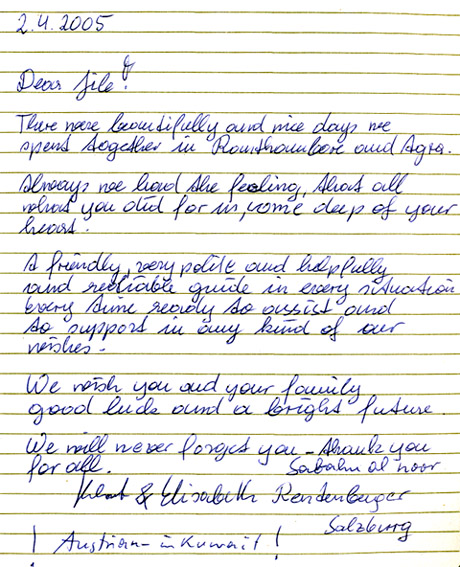 2.4.2005
Dear file!
There were beautifully and nice days we
spent together in Ranthambore and Agra.
Always we had the feeling, that all
what you did for us, come deep of your
heart.
A friendly, very polite and helpfully
and reliable guide in every situation
every time ready to assist and
to support in any kind of our
wishes.
We wish you and your family
good luck and a bright future.
We will never forget you - thank you
for all.
Sabahn al noor
& Elisabeth
Salzburg
! Austrian - in Kuwait !